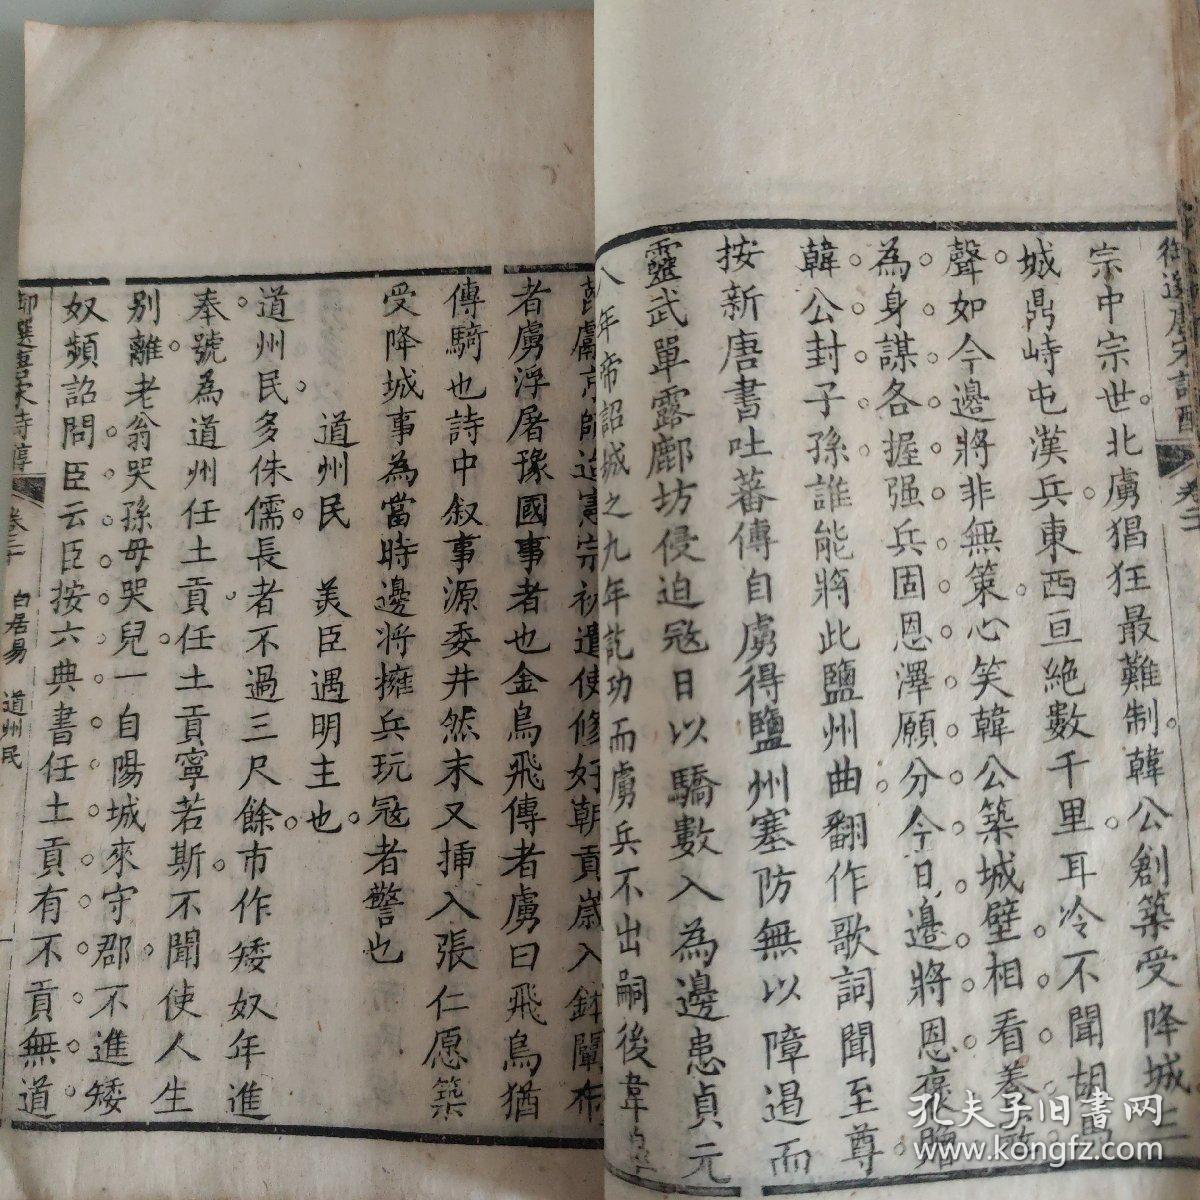 御選唐宋詩醇 卷二
宗中宗世北虜猖狂最難制韓公創築受降城三
城鼎峙屯漢兵東西亘絶數千里耳冷不聞胡馬
聲如今邊將非無策心笑韓公築城壁相看養
為身謀各握强兵固恩澤願分今日邊將恩褒贈
韓公封子孫誰能將此鹽州曲翻作歌詞聞至尊
按新唐書吐蕃傳自虜得鹽州塞防無以障遏而
靈武單露鄜坊侵迫寇日以驕數入為邊患貞元
八年帝詔城之九年訖功而虜兵不出嗣後韋皐
京師迨憲宗初遣使修好朝貢歲入鉢闡布
者虜浮屠豫國事者也金鳥飛傳者虜曰飛鳥猶
傳騎也詩中叙事源委井然末又挿入張仁愿築
受降城事為當時邊將擁兵玩寇者警也
道州民 美臣遇明主也
道州民多侏儒長者不過三尺餘市作矮奴年進
奉號為道州任土貢任土貢寧若斯不聞使人生
别離老翁哭孫母哭兒一自陽城來守郡不進矮
奴頻詔問臣云臣按六典書任土貢有不貢無道
御選唐宋詩醇 卷二十 白居易 道州民
孔夫子旧书网
www.kongfz.com